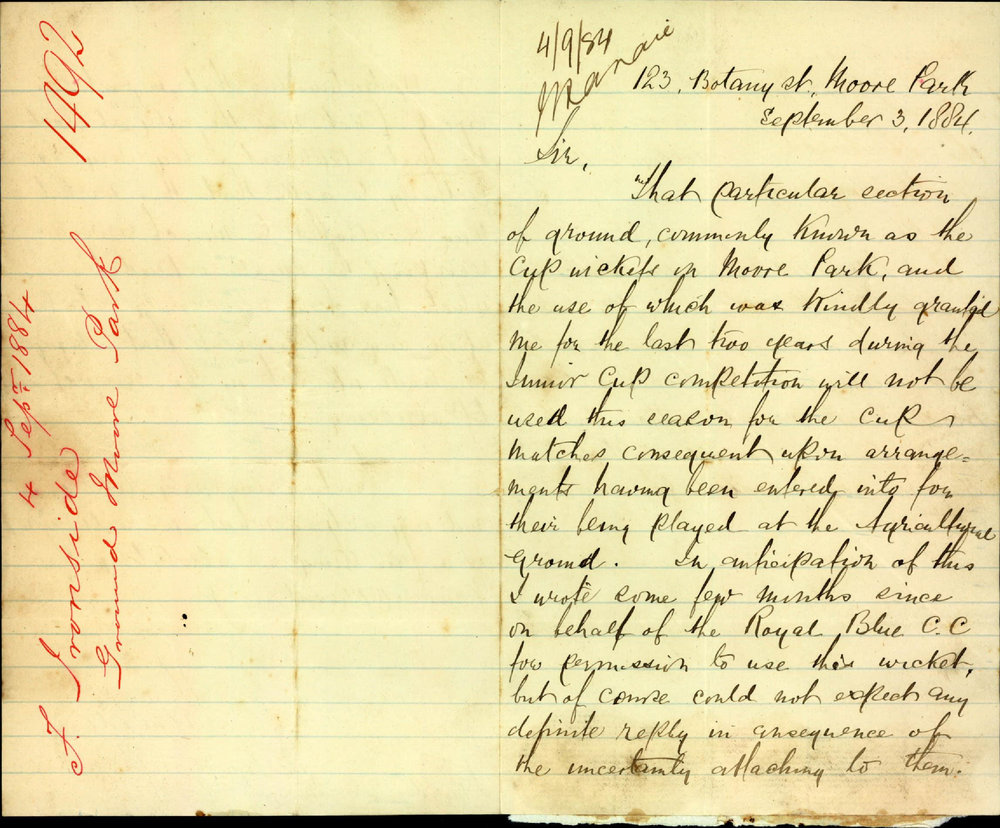 1492
4 Sepr. 1884
F. Ironside
Ground Moore Park
4/9/84
123, Botany st, Moore Park
September 3, 1884.
Sir,
That particular section
of ground, commonly known as the
Cup wickets in Moore Park, and
the use of which was kindly granted
me for the last two years during the
Junior Cup competition will not be
used this season for the Cup
matches consequent upon arrange=
ments having been entered into for
their being played at the Agricultural
Ground. In anticipation of this
I wrote some few months since
on behalf of the Royal Blue C.C
for permission to use this wicket,
but of course could not expect any
definite reply in consequence of
the uncertainty attaching to them.